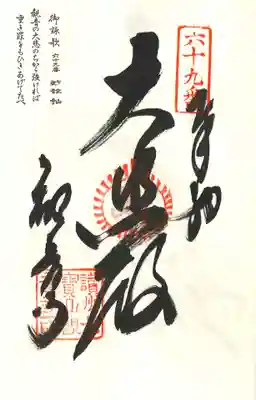 六十九番
奉納
大悲殿
観音寺
御詠歌 六十九番
観音の大悲のちから強ければ
重き罪をもひきあげてたべ